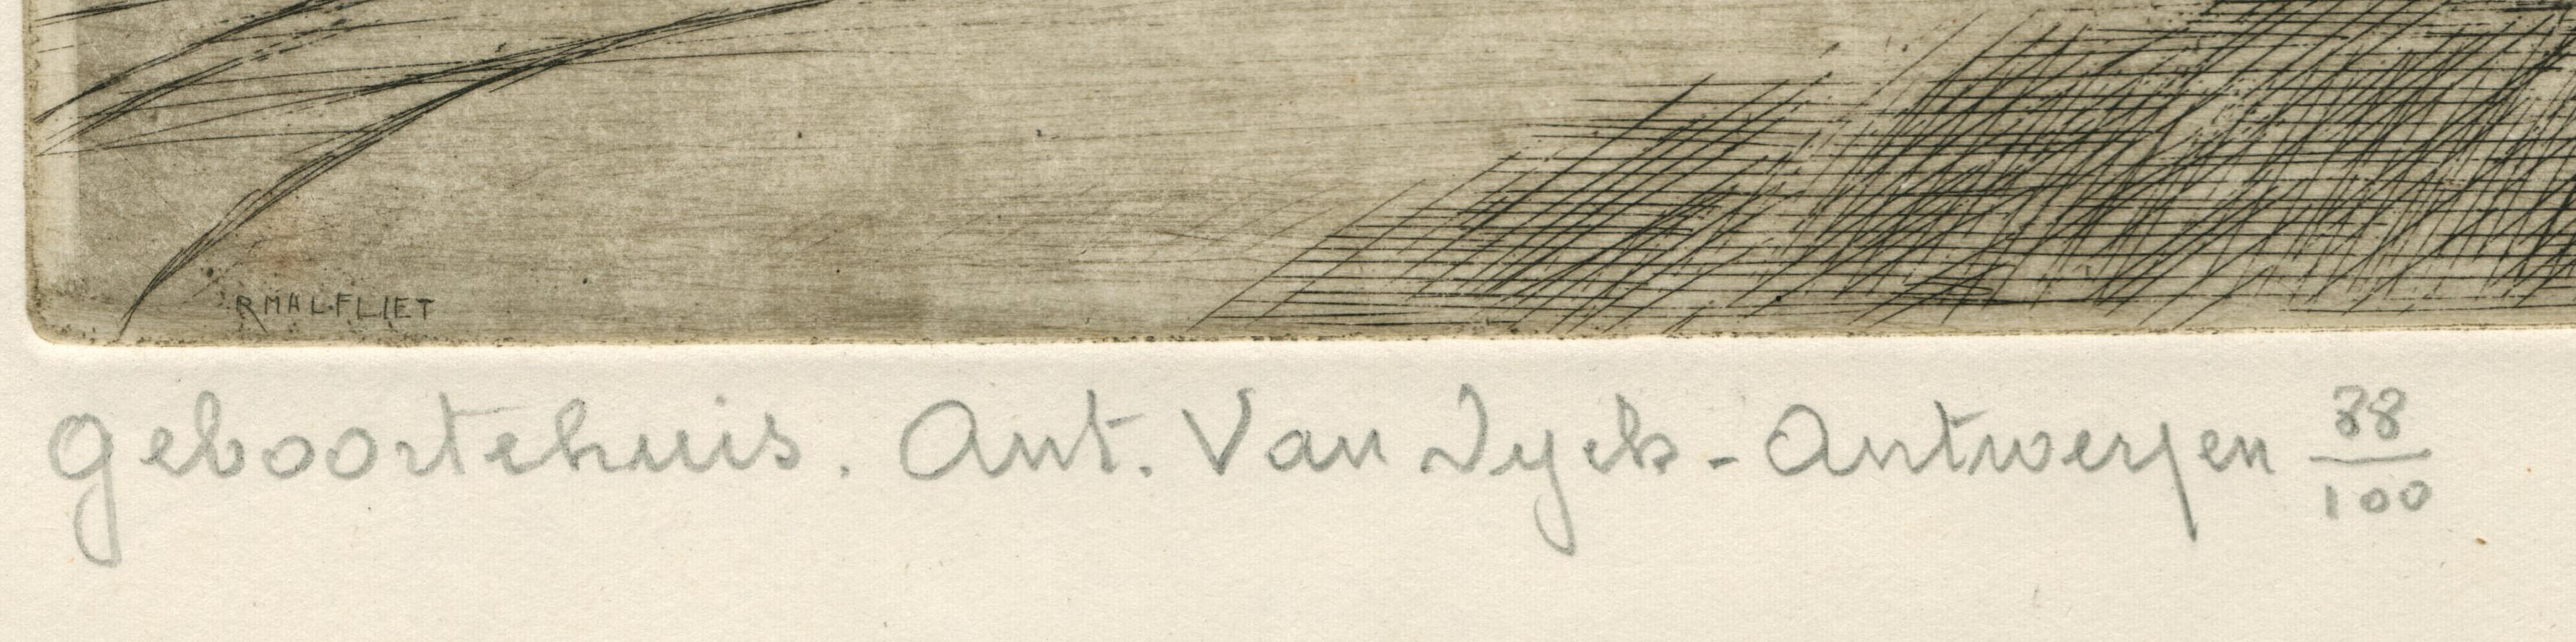 R MALFLIET
geboortehuis. Ant. Van Dyck - Antwerpen 38/100